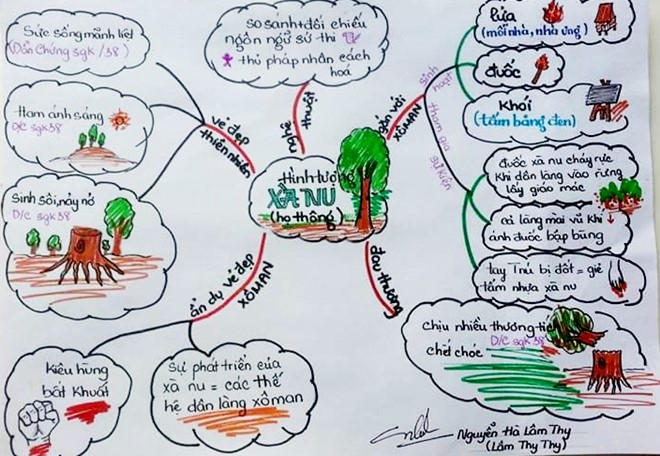 Sức sống mãnh liệt
(Dẫn Chứng sgk / 38)
Ham ánh sáng
D/c sgk 38
Sinh sôi, nảy nở
D/c sgk 38
vẻ đẹp
thiên nhiên
so sánh + đối chiếu
ngôn ngữ sử thi
thủ pháp nhân cách
hoá
nghệ
thuật
hình tượng
XÀ NU
(họ thông)
gắn với
XÔMAN
sinh hoạt
tham gia
sự kiện
Lửa
(mỗi nhà, nhà ưng)
đuốc
Khói
(tấm bảng đen)
đuốc xà nu cháy rực
khi dân làng vào rừng
lấy giáo mác
cả làng mài vũ khí
ánh đuốc bập bùng
tay Tnú bị đốt = giẻ
tẩm nhựa xà nu
đau thương
Chịu nhiều thương tích
D/c sgk 38
chết chóc
ẩn dụ vẻ đẹp
XÔMAN
Kiêu hùng
bất khuất
Sự phát triển của
xà nu = các thế
hệ dân làng xôman
Nguyễn Hà Lâm Thy
(Lâm Thy Thy)